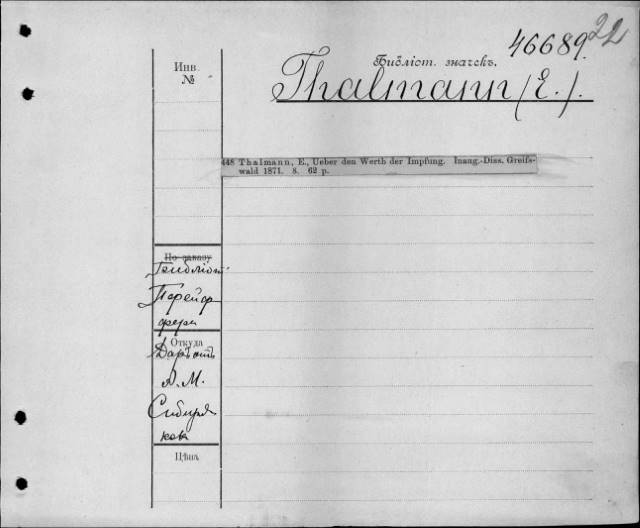 46689. 22
Инв.
№
Библіот. значекъ.
Thalmann (E.).
448 Thalmann, E., Ueber den Werth der Impfung. Inaug.-Diss. Greifs-
wald 1871. 8. 62 p.
По заказу
Библіот.
Пфейф
фера
Откуда
Даръ отъ
А. М.
Сибиря
кова
Цѣна